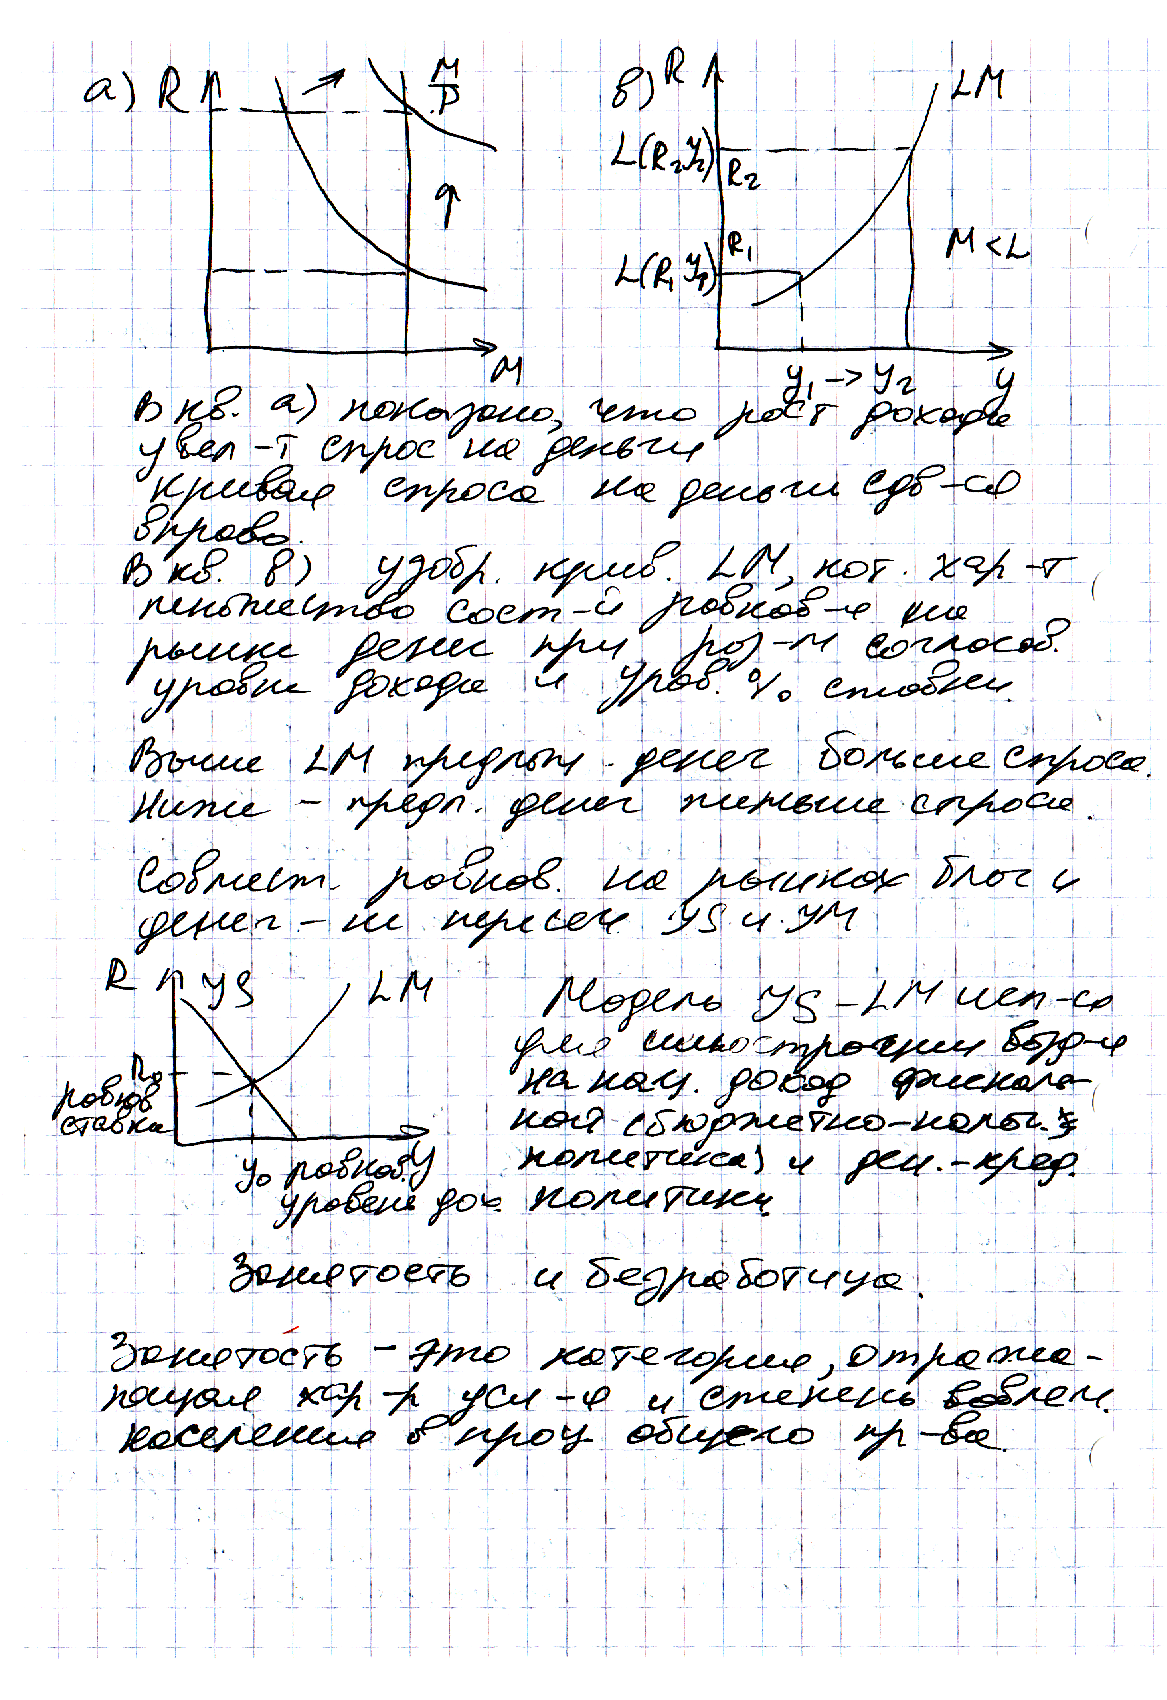 а) R M/P
M
в) R LM
L(R₂Y₂) R₂
R₁ M<L
L(R₁Y₁)
y₁ → y₂ y
В кв. а) показано, что рост дохода
увел-т спрос на деньги
кривая спроса на деньги сдв-ся
вправо.
В кв. в) изобр. крив. LM, кот. хар-т
множество сост-й равнов-я на
рынке денег при раз-м соглосов.
уровне дохода и уров. % ставки.
Выше LM предлож. денег больше спроса.
Ниже – предл. денег меньше спроса.
Совмест. равнов. на рынках благ и
денег – на пересеч YS и YM
R YS LM
R₀
равнов
ставка
y₀ равнов. y
уровень дох.
Модель YS – LM исп-ся
для иллюстрации возд-я
на нац. доход фискаль-
ной (бюджетно-налог.
политика) и ден.-кред.
политики.
Занятость и безработица.
Занятость – это категория, отража-
ющая хар-р усл-я и степень вовлеч.
населения в проц общего пр-ва.